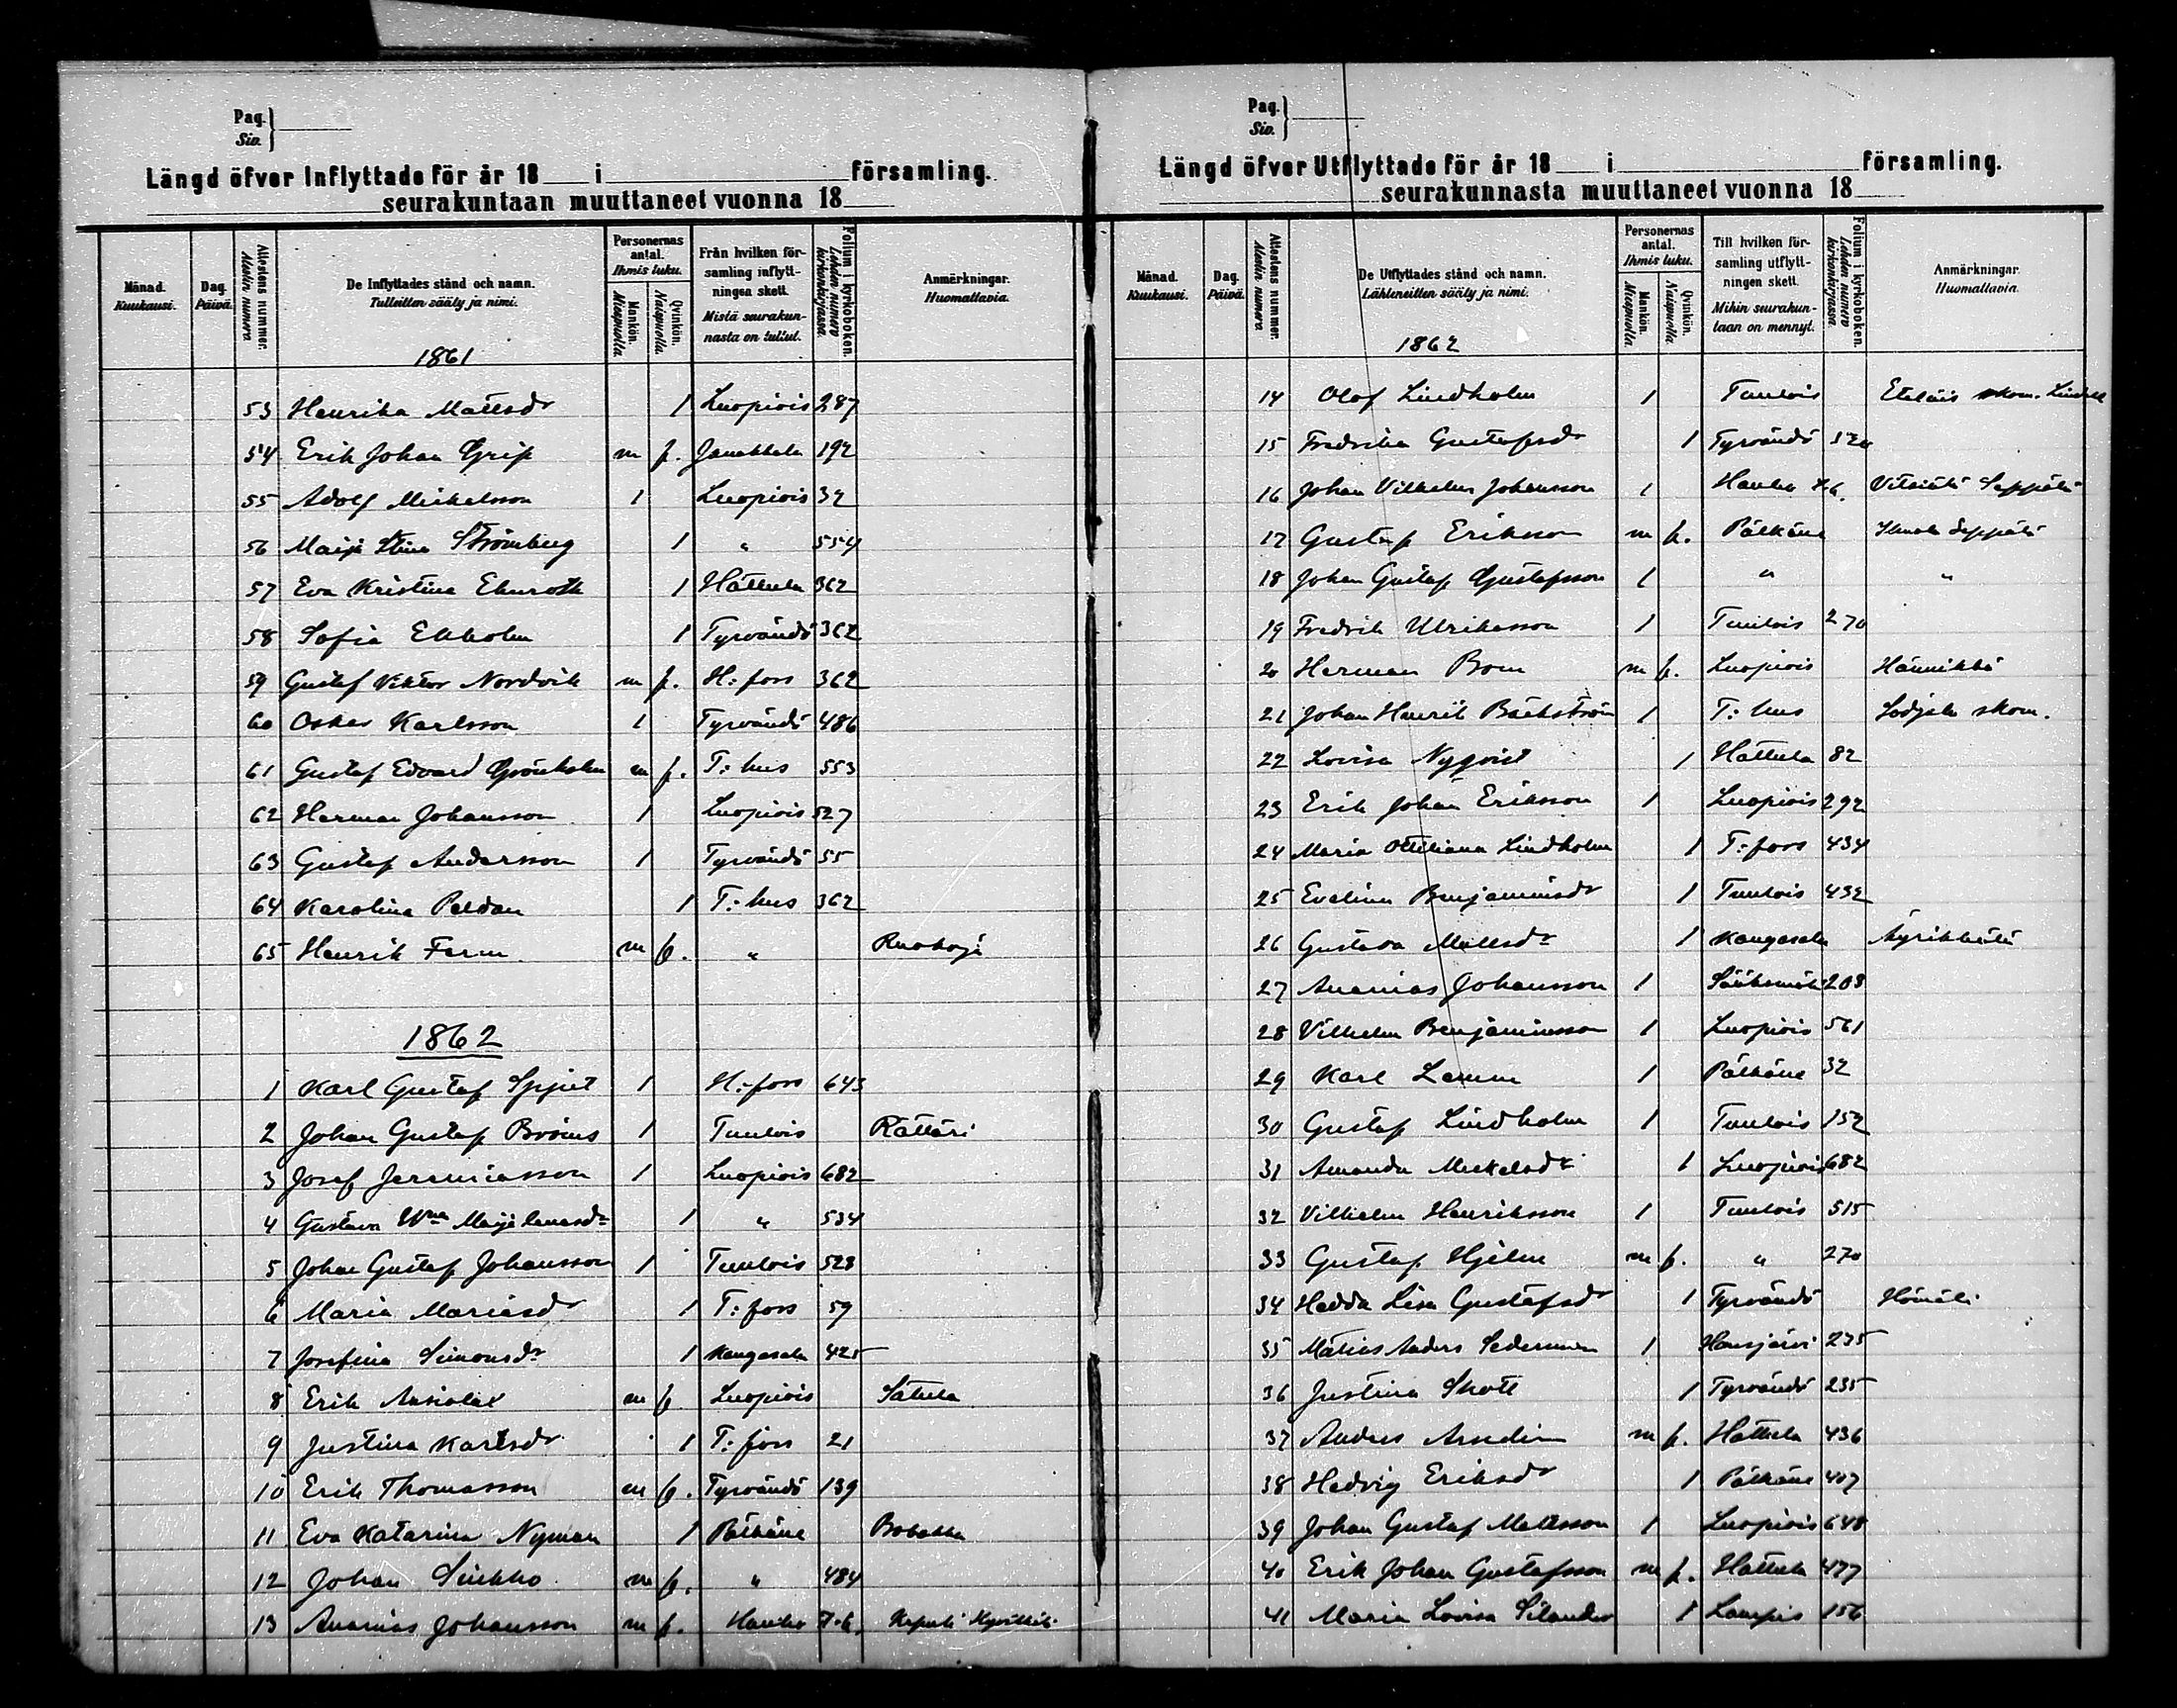 Pag.
Siv.
Längd öfver Inflyttade för år 18 i församling.
seurakuntaan muuttaneet vuonna 18
Månad. Kuukausi.
Dag. Päivä.
Attestens nummer. Atestin numero
De Inflyttades stånd och namn. Tulleitten sääty ja nimi.
Personernas antal. Ihmis luku.
Mankön. Miespuolia
Qvinkön. Naispuolia
Från hvilken församling inflyttningen skett. Mistä seurakunnasta on tullut.
Folium i kyrkoboken. Lehden numero kirkonkirjassa.
Anmärkningar. Huomattavia.
1861
53 Henrika Mattsdr 1 Luopiois 287
54 Erik Johan Grip m f. Janakkala 192
55 Adolf Mickelsson 1 Luopiois 32
56 Maija Stina Strömberg 1 " 554
57 Eva Kristina Ekuroth 1 Hattula 362
58 Sofia Ekholm 1 Tyrvändö 362
59 Gustaf Viktor Nordvik m f. H:fors 362
60 Oskar Karlsson 1 Tyrvändö 486
61 Gustaf Edvard Grönholm m f. T:hus 553
62 Herman Johansson 1 Luopiois 527
63 Gustaf Andersson 1 Tyrvändö 55
64 Karolina Paldan 1 T:hus 362
65 Henrik Ferm m f. " Ruokoja
1862
1 Karl Gustaf Spjut 1 H:fors 643
2 Johan Gustaf Broms 1 Tuulois Rättäri
3 Josef Jeremiasson 1 Luopiois 682
4 Gustava Wma Maijelenasdr 1 " 534
5 Johan Gustaf Johansson 1 Tuulois 528
6 Maria Mariasdr 1 T:fors 59
7 Josefina Simonsdr 1 Kangasala 425
8 Erik m f. Luopiois Sattula
9 Justina Karlsdr 1 T:fors 21
10 Erik Thomasson m f. Tyrvändö 139
11 Eva Katarina Nyman 1 Pälkäne
12 Johan Sinkko m f. " 484
13 Ananias Johansson m f. Hauho
Pag.
Siv.
Längd öfver Utflyttade för år 18 i församling.
seurakunnasta muuttaneet vuonna 18
Månad. Kuukausi.
Dag. Päivä.
Attestens nummer. Atestin numero
De Utflyttades stånd och namn. Lähteneitten sääty ja nimi.
Personernas antal. Ihmis luku.
Mankön. Miespuolia.
Qvinkön. Naispuolia
Till hvilken församling utflyttningen skett. Mihin seurakuntaan on mennyt.
Folium i kyrkoboken. Lehden numero kirkonkirjassa.
Anmärkningar. Huomattavia.
1862
14 Olof Lindholm 1 Tuulois Eteläis skom.
15 Fredrika Gustafsdr 1 Tyrvändö
16 Johan Vilhelm Johansson 1 Hauho Seppälä
17 Gustaf Eriksson m f. Pälkäne Seppälä
18 Johan Gustaf Gustafsson 1 " "
19 Fredrik Ulriksson 1 Tuulois 270
20 Herman Bom m f. Luopiois
21 Johan Henrik Bäckström 1 T:hus skom.
22 Lovisa Nyqvist 1 Hattula 82
23 Erik Johan Eriksson 1 Luopiois 292
24 Maria Ottiliana Lindholm 1 T:fors 434
25 Evelina Benjaminsdr 1 Tuulois 432
26 Gustava Mattsdr 1 Kangasala
27 Ananias Johansson 1 Sääksmäki 208
28 Vilhelm Benjaminsson 1 Luopiois 561
29 Karl Lamm 1 Pälkäne 32
30 Gustaf Lindholm 1 Tuulois 152
31 Amanda Mickelsdr 1 Luopiois 682
32 Vilhelm Henriksson 1 Tuulois 515
33 Gustaf Hjelm m f. " 270
34 Hedda Lisa Gustafsdr 1 Tyrvändö
35 Matias Anders 1 Hausjärvi 235
36 Justina Skott 1 Tyrvändö 235
37 Anders m f. Hattula 436
38 Hedvig Eriksdr 1 Pälkäne 407
39 Johan Gustaf Mattsson 1 Luopiois 648
40 Erik Johan Gustafsson m f. Hattula 477
41 Maria Lovisa Silander 1 Lampis 156